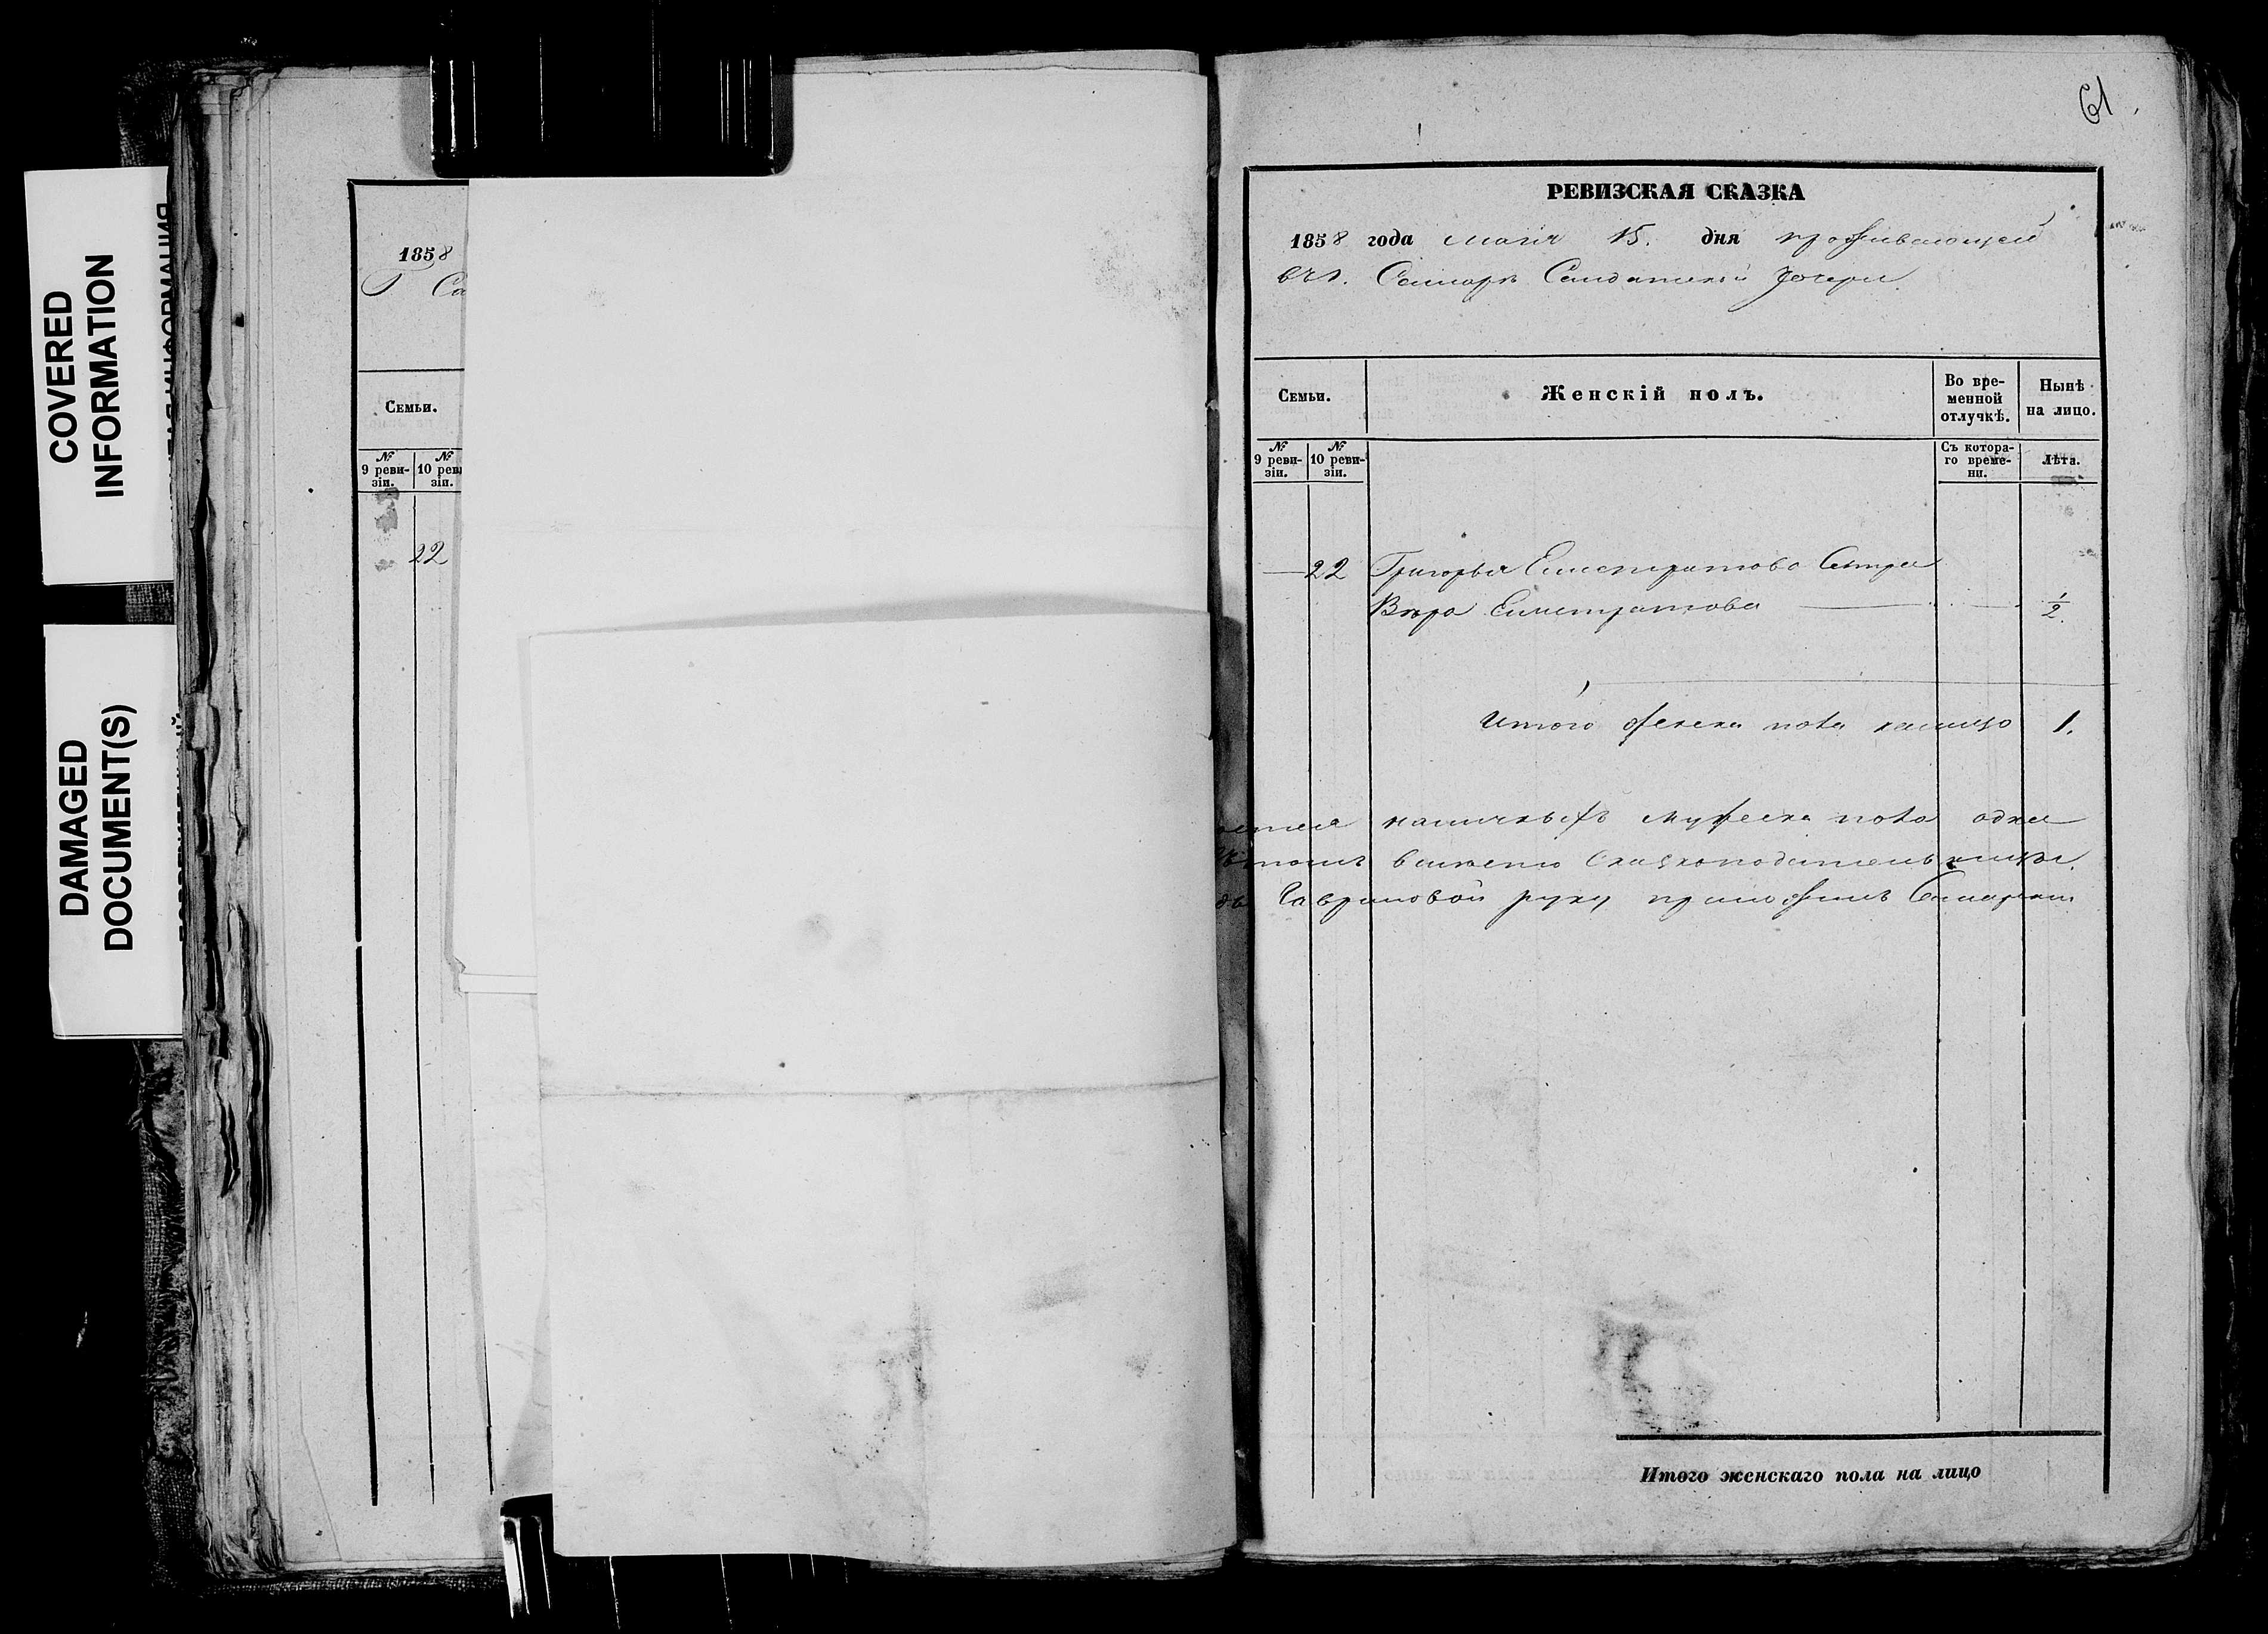 COVERED
INFORMATION
DAMAGED
DOCUMENT(S)
1858
Са
Семьи.
№ 9 реви-зіи.
№ 10 рев
зіи.
22
61
РЕВИЗСКАЯ СКАЗКА
1858 года маія 15. дня проживающей
въ г. Самарѣ Солдатской дочери
Семьи.
Женскій полъ.
Во вре-
менной
отлучкѣ.
Нынѣ
на лицо.
№ 9 реви-зіи.
№ 10 реви-зіи.
Съ котора-
го време-
ни.
Лѣта.
22 Григорья Елистратова Сестра
Вѣра Елистратова ½
Итого женска пола налицо 1.
наличныхъ мужеска пола одна
Сказкоподательницы
Гавриловой руку приложилъ Самарскій
Итого женскаго пола на лицо